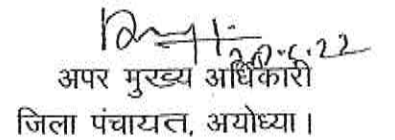 20.6.22
अपर मुख्य अधिकारी
जिला पंचायत, अयोध्या।